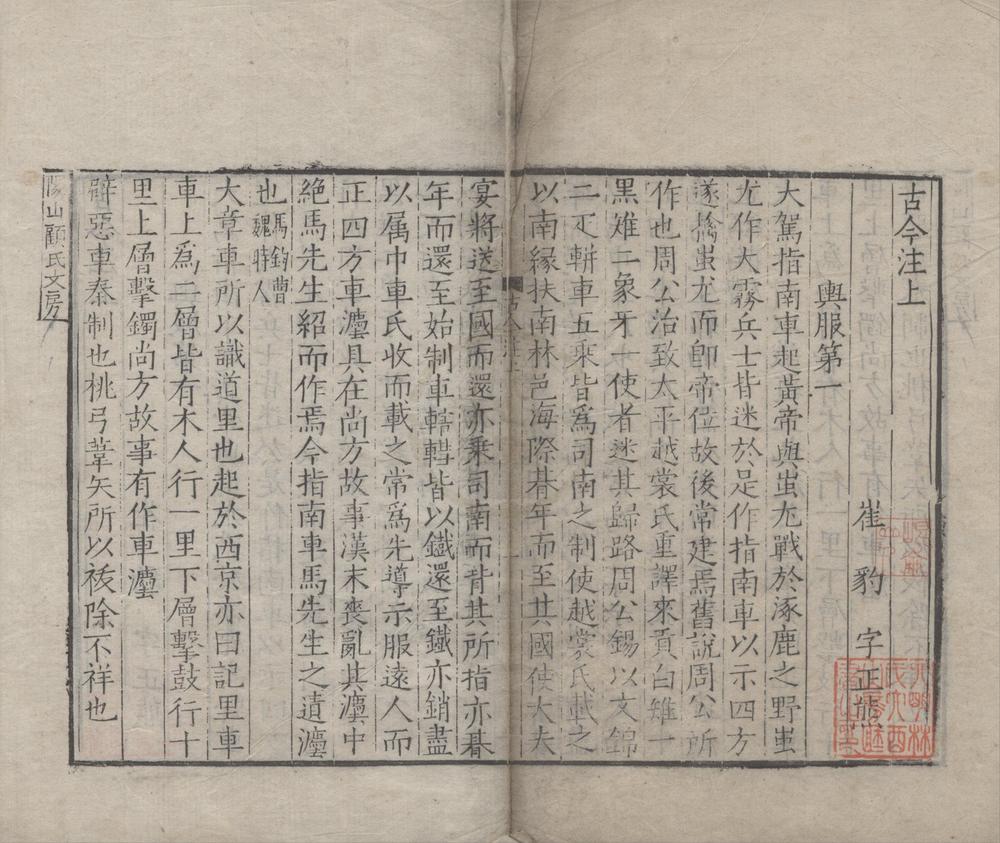 古今注上
崔豹 字正熊
輿服第一
大駕指南車起黃帝與蚩尤戰於涿鹿之野蚩
尤作大霧兵士皆迷於是作指南車以示四方
遂擒蚩尤而卽帝位故後常建焉舊說周公所
作也周公治致太平越裳氏重譯來貢白雉一
黑雉二象牙一使者迷其歸路周公錫以文錦
二疋軿車五乘皆爲司南之制使越裳氏載之
以南緣扶南林邑海際朞年而至其國使大夫
宴將送至國而還亦乘司南而背其所指亦朞
年而還至始制車轄轊皆以鐵還至鐵亦銷盡
以屬巾車氏收而載之常爲先導示服遠人而
正四方車灋具在尚方故事漢末喪亂其灋中
絕馬先生紹而作焉今指南車馬先生之遺灋
也馬鈞曹魏時人
大章車所以識道里也起於西京亦曰記里車
車上爲二層皆有木人行一里下層擊鼓行十
里上層擊鐲尚方故事有作車灋
辟惡車秦制也桃弓葦矢所以祓除不祥也
陽山顧氏文房